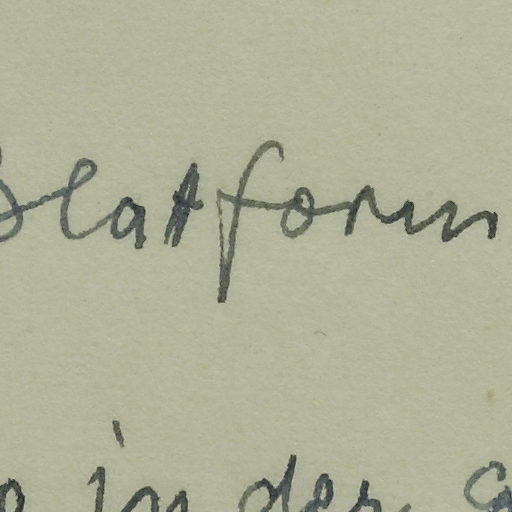 Blattform
in der